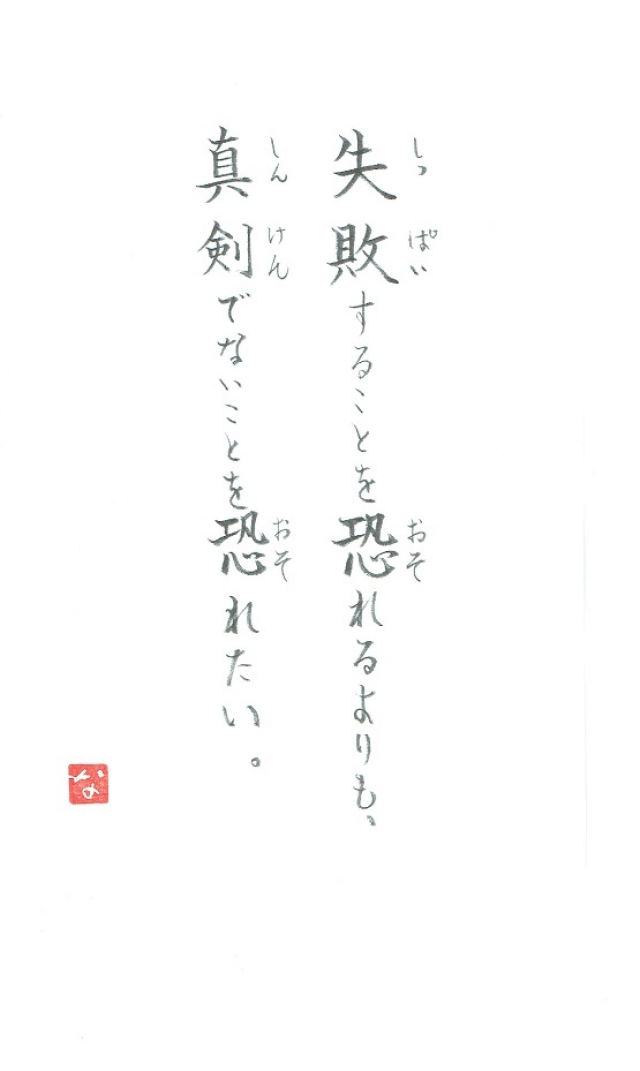 失敗することを恐れるよりも、
しっぱい
おそ
真剣でないことを恐れたい。
しんけん
おそ
な